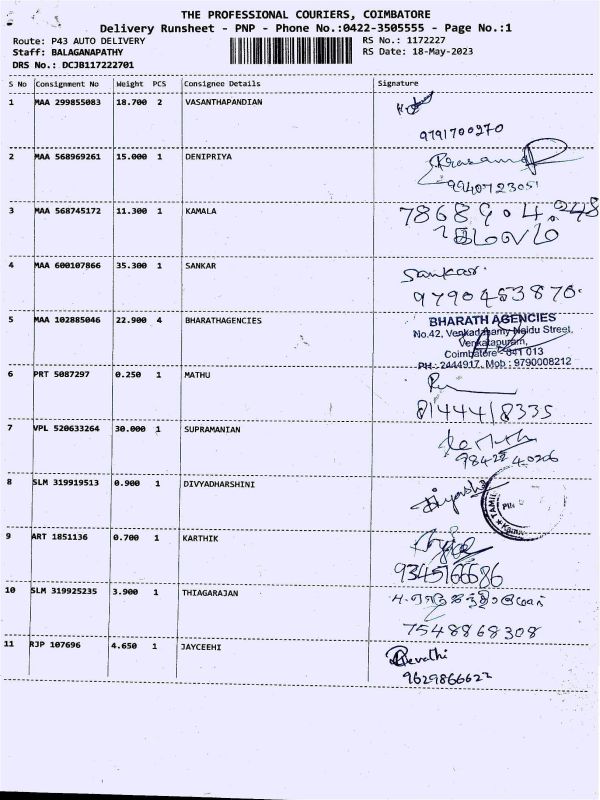 THE PROFESSIONAL COURIERS, COIMBATORE
Delivery Runsheet - PNP - Phone No.:0422-3505555 - Page No.:1
Route: P43 AUTO DELIVERY RS No.: 1172227
Staff: BALAGANAPATHY RS Date: 18-May-2023
DRS No.: DCJB117222701
S No Consignment No Weight PCS Consignee Details Signature
1 MAA 299855083 18.700 2 VASANTHAPANDIAN
9791700270
2 MAA 568969261 15.000 1 DENIPRIYA
9940723051
3 MAA 568745172 11.300 1 KAMALA
4 MAA 600107866 35.300 1 SANKAR Sankar.
9790453870.
5 MAA 102885046 22.900 4 BHARATHAGENCIES BHARATH AGENCIES
No.42, Venkadasamy Naidu Street,
Venkatapuram,
Coimbatore - 641 013
PH : 2444917, Mob : 9790008212
6 PRT 5087297 0.250 1 MATHU
8144418335
7 VPL 520633264 30.000 1 SUPRAMANIAN
8 SLM 319919513 0.900 1 DIVYADHARSHINI
TAMIL
9 ART 1851136 0.700 1 KARTHIK
10 SLM 319925235 3.900 1 THIAGARAJAN
7548868308
11 RJP 107696 4.650 1 JAYCEEHI Revathi
9629866622